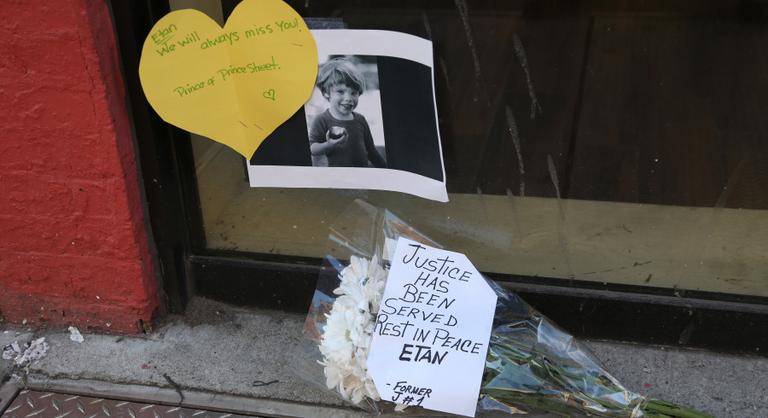 Etan
We will always miss you!
Prince of Prince Street.
JUSTICE
HAS
BEEN
SERVED
REST IN PEACE
ETAN
- FORMER
J#1